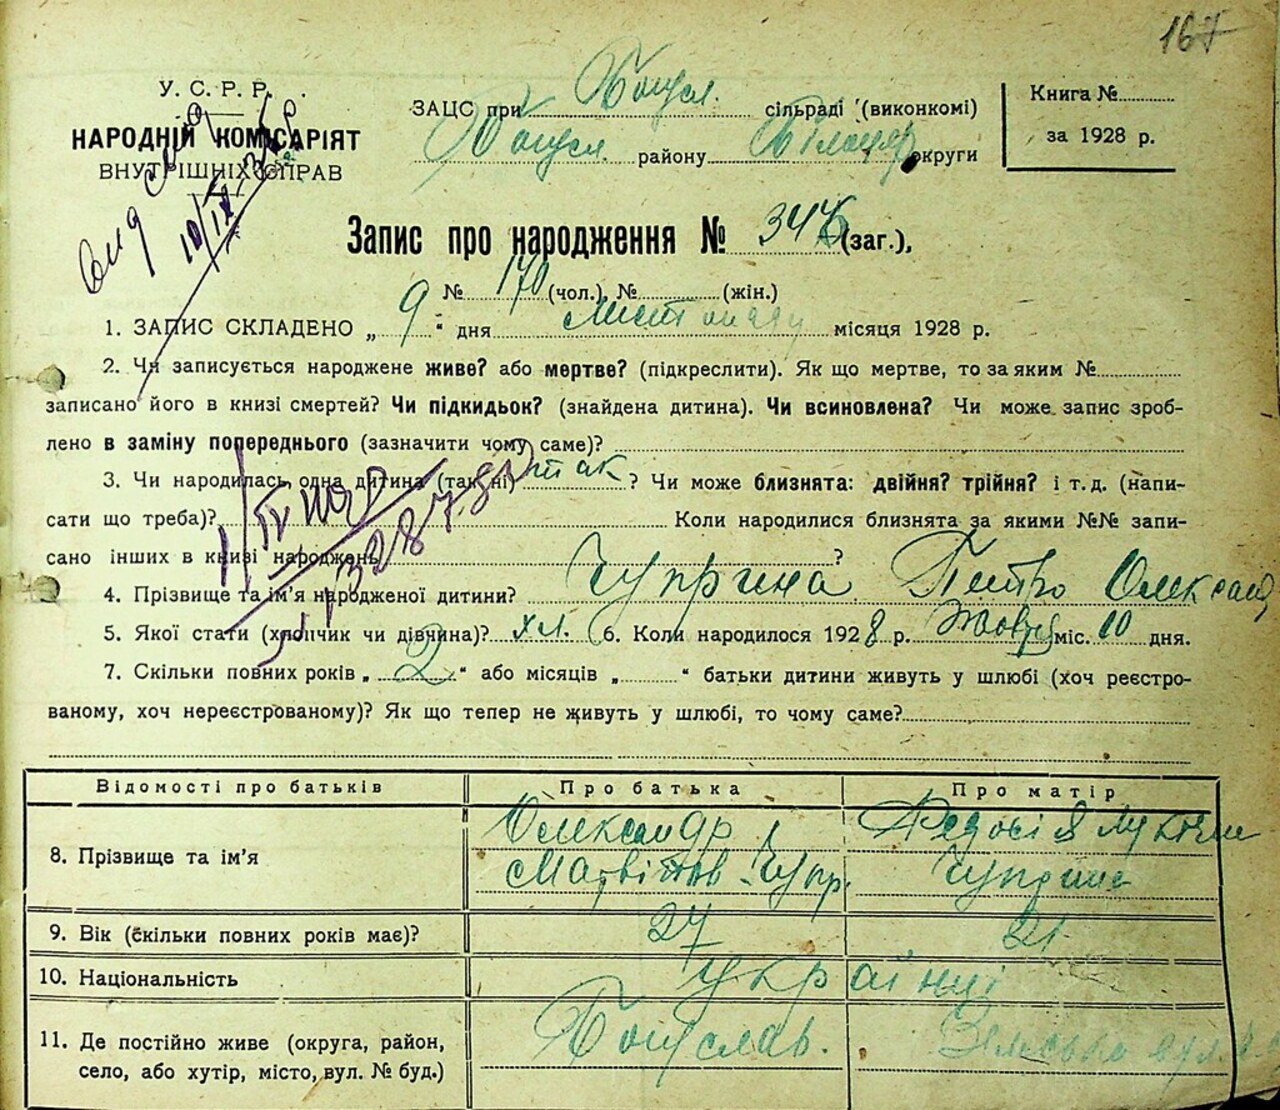 167
У. С. Р. Р.
НАРОДНІЙ КОМІСАРІЯТ
ВНУТРІШНІХ СПРАВ
ЗАЦС при Богусл. сільраді (виконкомі)
Богусл. району Білоцер округи
Книга №
за 1928 р.
10/IX-
Запис про народження № 346 (заг.),
№ 170 (чол.) № (жін.)
1. ЗАПИС СКЛАДЕНО „ 9 “ дня Листопаду місяця 1928 р.
2. Чи записується народжене живе? або мертве? (підкреслити). Як що мертве, то за яким №
записано його в книзі смертей? Чи підкидьок? (знайдена дитина). Чи всиновлена? Чи може запис зроб-
лено в заміну попереднього (зазначити чому саме)?
3. Чи народилась одна дитина (так, ні) так ? Чи може близнята: двійня? трійня? і т. д. (напи-
сати що треба)? Коли народилися близнята за якими №№ запи-
сано інших в книзі народжень ?
4. Прізвище та ім’я народженої дитини? Чуприна Петро Олександ
5. Якої стати (хлопчик чи дівчина)? хл. 6. Коли народилося 1928 р. Жовт міс. 10 дня.
7. Скільки повних років „ 2 “ або місяців „ “ батьки дитини живуть у шлюбі (хоч реєстро-
ваному, хоч нереєстрованому)? Як що тепер не живуть у шлюбі, то чому саме?
Відомості про батьків Про батька Про матір
8. Прізвище та ім’я Олександр Федосія Лукова
Матвітов. Чупр. Чуприна
9. Вік (скільки повних років має)? 27 21
10. Національність українці
11. Де постійно живе (округа, район,
село, або хутір, місто, вул. № буд.)
Богуслав. вул.